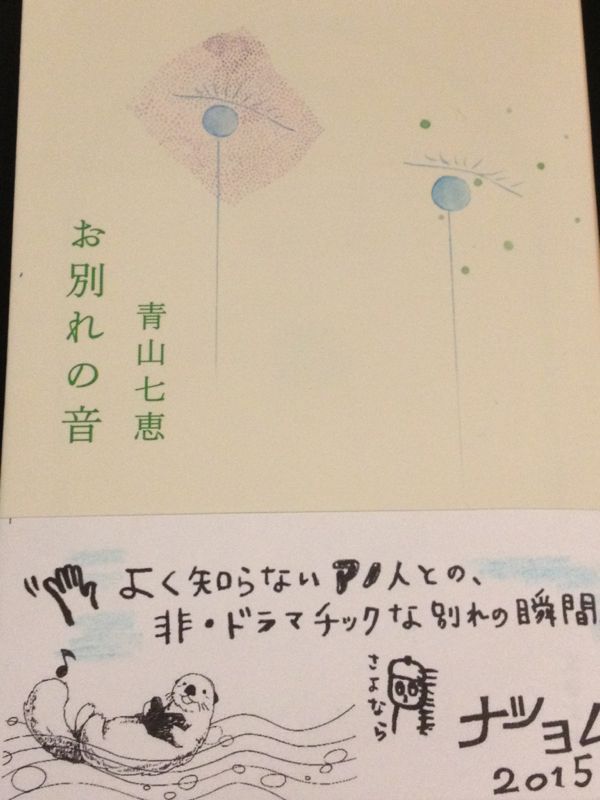 お別れの音
青山七恵
よく知らないアノ人との、
非・ドラマチックな別れの瞬間
さよなら
ナツヨム
2015